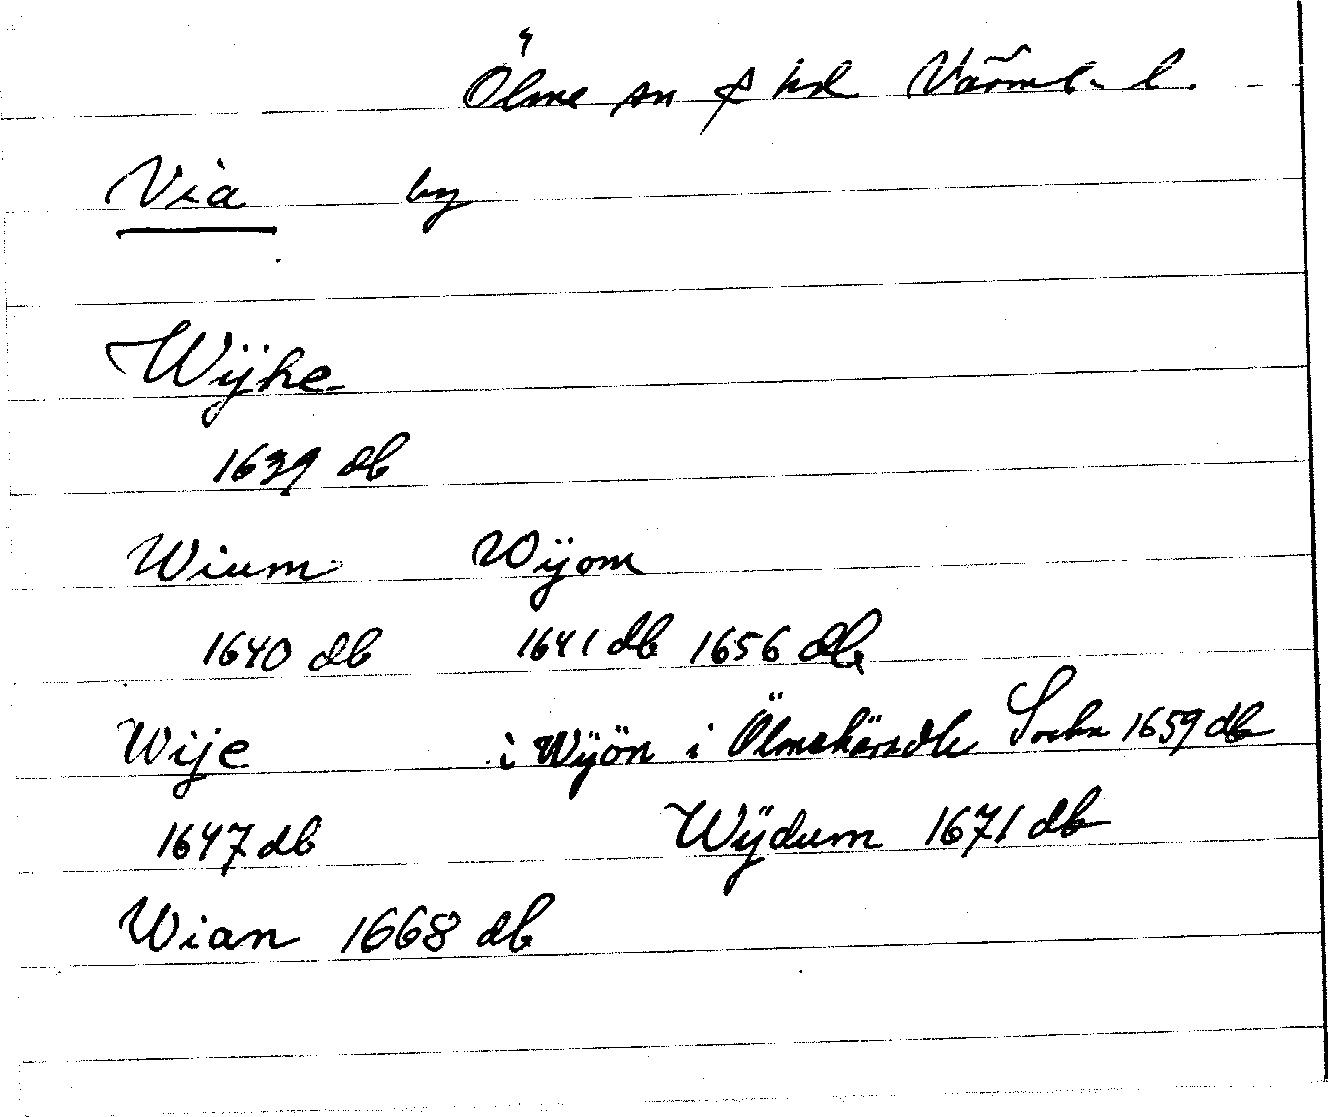 Ölme sn & hd Värml. l.
Via by
Wijhe
1639 db
Wium Wijom
1640 db 1641 db 1656 db
Wije i Wÿön i Ölmehäradh Sochn 1659 db
1647 db Wÿdum 1671 db
Wian 1668 db